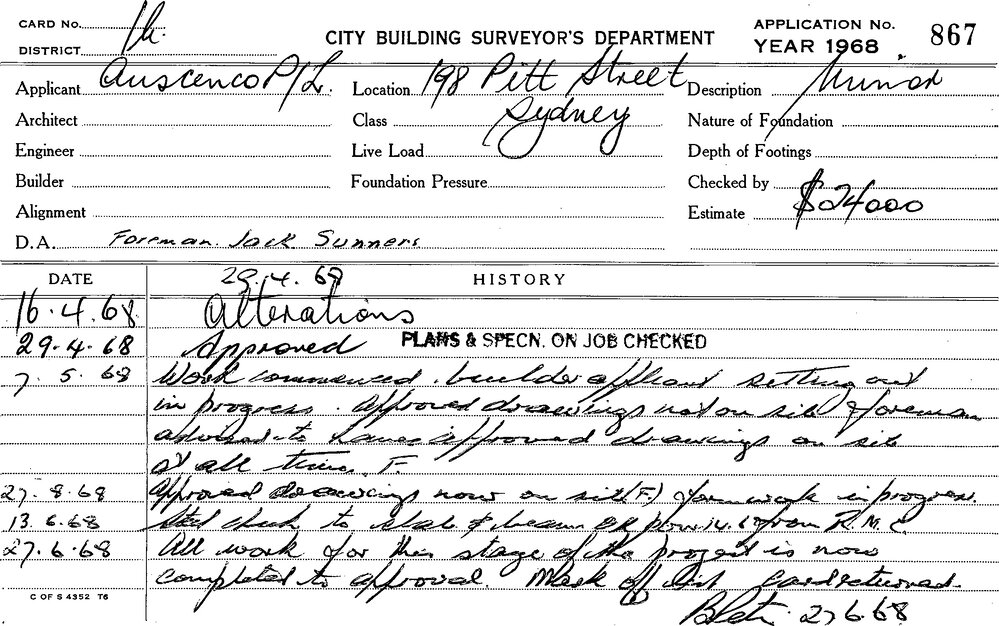 CARD No. 1h.
DISTRICT
CITY BUILDING SURVEYOR'S DEPARTMENT
APPLICATION No.
YEAR 1968 867
Applicant Auscenco P/L. Location 198 Pitt Street Description Minor
Architect Class Sydney Nature of Foundation
Engineer Live Load Depth of Footings
Builder Foundation Pressure Checked by
Alignment Estimate $24000
D.A. Foreman. Jack Sunners
DATE 29.4.68 HISTORY
16.4.68 Alterations
29.4.68 Approved PLANS & SPECN. ON JOB CHECKED
7.5.68 Work commenced. builder applicant setting out
in progress. Approved drawings not on site foreman
advised to have approved drawings on site
at all times. F.
27.8.68 Approved drawings now on site (F.) formwork in progress.
13.6.68 Steel check to slab & beam OK pour 14.6 from R.M.C.
27.6.68 All work for this stage of the project is now
completed to approval. Mark off list Card returned.
27.6.68
C OF S 4352 T6